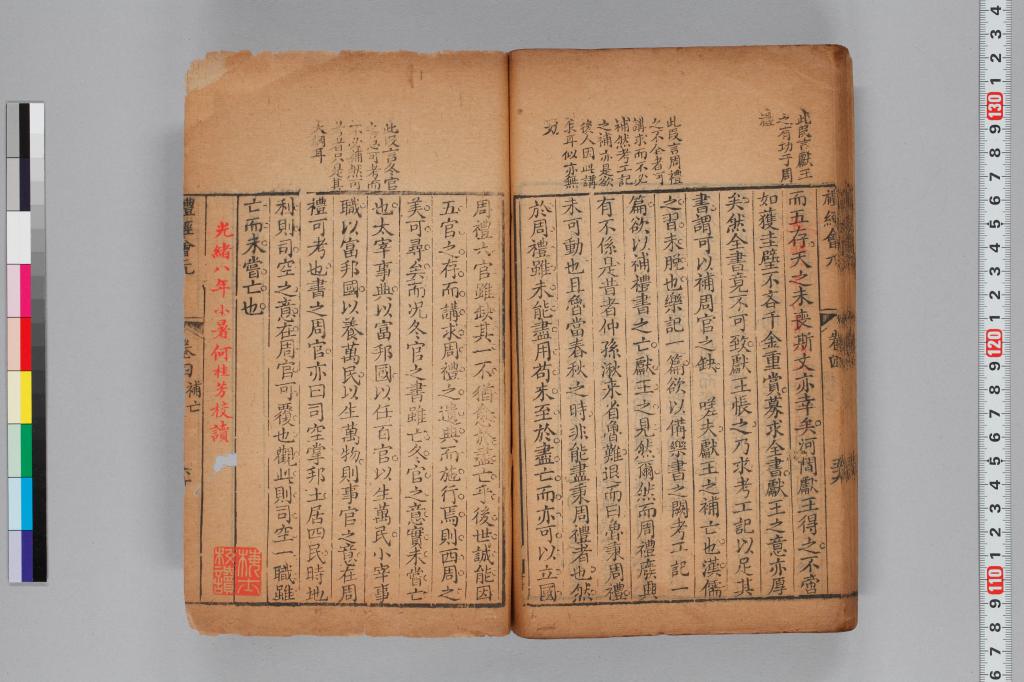 此叚言獻王
之有功于周
禮
禮經會元
卷四
而五存天之未喪斯文亦幸矣河間獻王得之不啻
如獲圭璧不吝千金重賞募求全書獻王之意亦厚
矣然全書竟不可致獻王悵之乃求考工記以足其
書謂可以補周官之缺而嗟夫獻王之補亡也漢儒
之習未脫也樂記一篇欲以備樂書之闕考工記一
篇欲以補禮書之亡獻王之見然爾然而周禮廣典
有不係是昔者仲孫湫来省魯難退而曰魯秉周禮
未可動也且魯當春秋之時非能盡秉周禮者也然
於周禮雖未能盡用苟未至於盡亡而亦可以立國
此叚言周禮
之不全者可
講求而不必
補然考工記
之補亦是欲
後人因此講
求耳似亦無
周禮六官雖缺其一不猶愈於盡亡乎後世誠能因
五官之存而講求周禮之遺典而施行焉則西周之
美可尋矣而况冬官之書雖亡冬官之意實未嘗亡
也太宰事典以富邦國以任百官以生萬民小宰事
職以富邦國以養萬民以生萬物則事官之意在周
禮可考也書之周官亦曰司空掌邦土居四民時地
利則司空之意在周官可覆也觀此則司空一職雖
亡而未嘗亡也
此叚言冬官
之意可考而
不必補然可
考者只是其
大綱耳
光緒八年小暑何桂芳校讀
禮經會元
卷四補亡
校讀